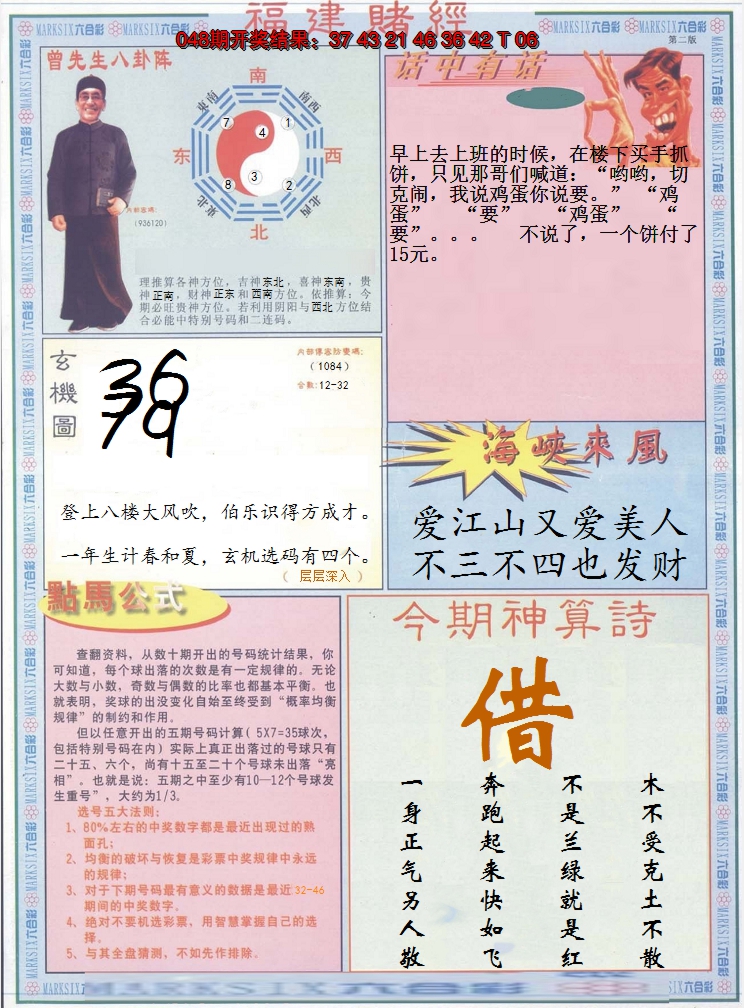 福建賭經
048期开奖结果：37 43 21 46 36 42 T 06
第二版
MARKSIX六合彩
曾先生八卦阵
南
东南
南西
7
1
4
东
西
3
8
2
東北
北西
北
内部密碼:
(936120)
理推算各神方位，吉神东北，喜神东南，贵
神正南，财神正东和西南方位。依推算：今
期必旺贵神方位。若利用阴阳与西北方位结
合必能中特别号码和二连码。
话中有话
早上去上班的时候，在楼下买手抓
饼，只见那哥们喊道：“哟哟，切
克闹，我说鸡蛋你说要。” “鸡
蛋” “要” “鸡蛋” “
要”。。。 不说了，一个饼付了
15元。
玄機圖
36
79
(1084)
合数:12-32
登上八楼大风吹，伯乐识得方成才。
一年生计春和夏，玄机选码有四个。
（ 层层深入 ）
海峽來風
爱江山又爱美人
不三不四也发财
點馬公式
查翻资料，从数十期开出的号码统计结果，你
可知道，每个球出落的次数是有一定规律的。无论
大数与小数，奇数与偶数的比率也都基本平衡。也
就表明，奖球的出没变化自始至终受到“概率均衡
规律”的制约和作用。
但以任意开出的五期号码计算( 5X7=35球次，
包括特别号码在内) 实际上真正出落过的号球只有
二十五、六个，尚有十五至二十个号球未出落“亮
相”。也就是说：五期之中至少有10—12个号球发
生重号”，大约为1/3。
选号五大法则：
1、80%左右的中奖数字都是最近出现过的熟
面孔；
2、均衡的破坏与恢复是彩票中奖规律中永远
的规律；
3、对于下期号码最有意义的数据是最近 32-46
期间的中奖数字。
4、绝对不要机选彩票，用智慧掌握自己的选
择。
5、与其全盘猜测，不如先作排除。
今期神算詩
借
木不受克土不散
不是兰绿就是红
奔跑起来快如飞
一身正气另人敬